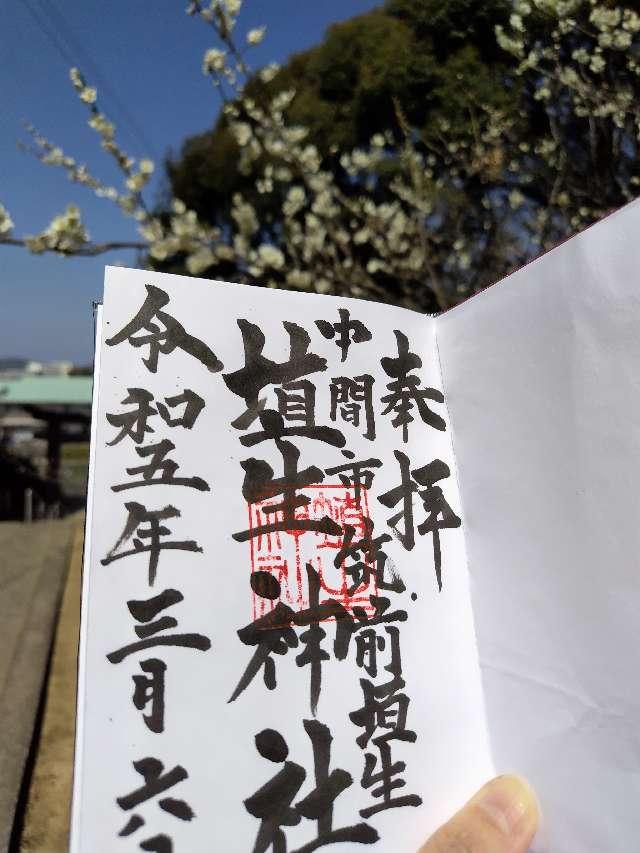 奉拝
中間市筑前垣生
垣生神社
令和五年三月六